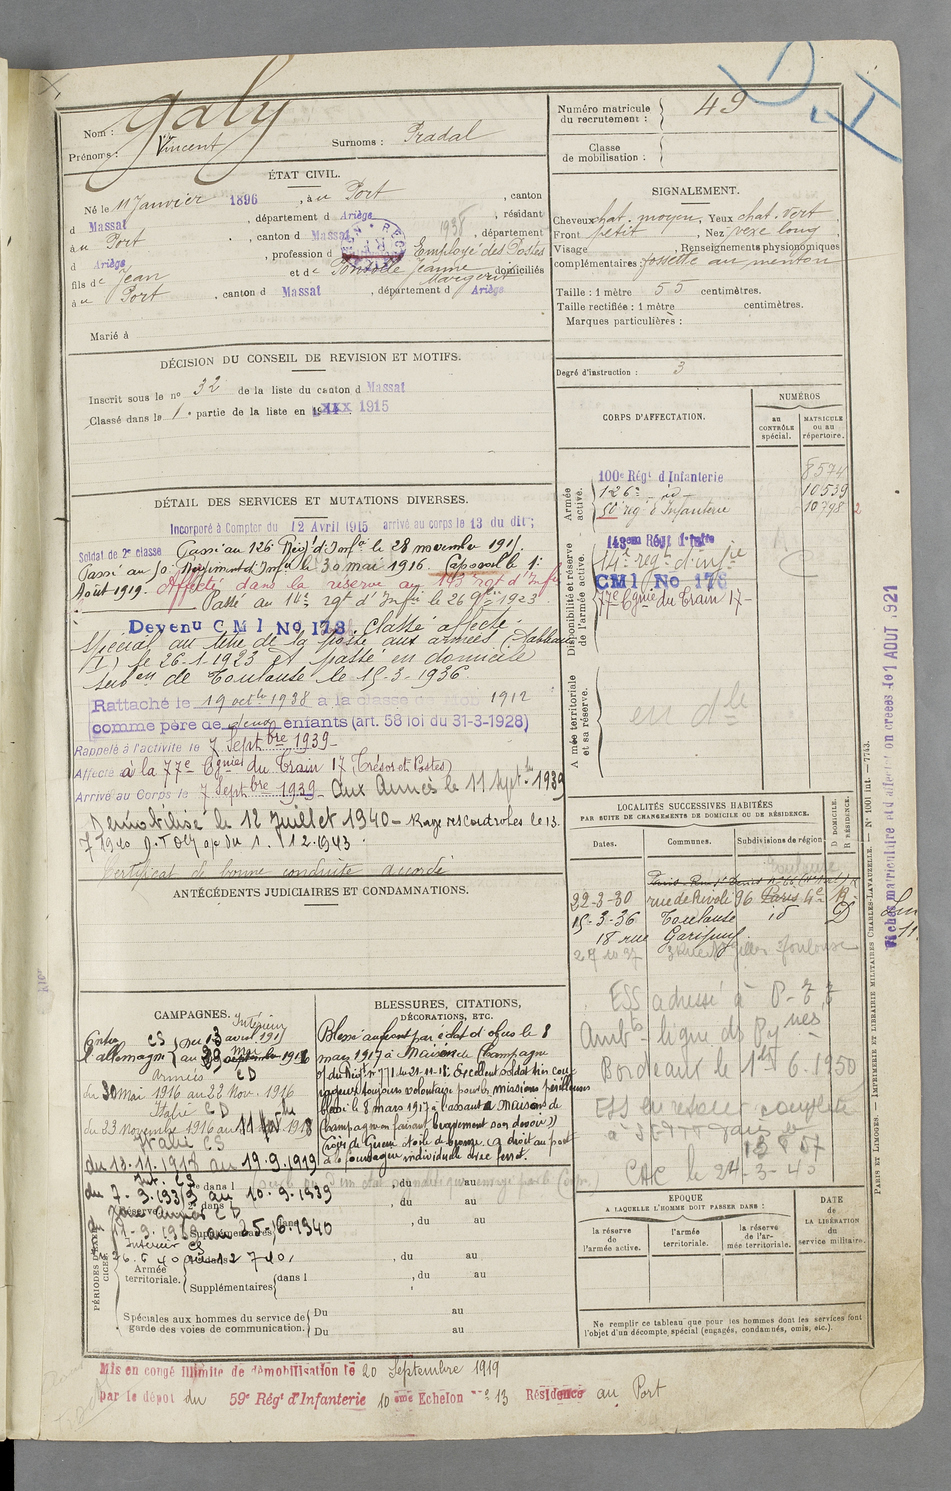 Nom : Galy
Prénoms : Vincent Surnoms : Pradal
Numéro matricule du recrutement : 49
Classe de mobilisation :
ÉTAT CIVIL.
Né le 11 Janvier 1896, à u Port, canton
d Massat, département d Ariège, résidant
à u Port, canton d Massat, département
d Ariège, profession d Employé des Postes
fils de Jean et de Jeanne Marguerite domiciliés
à u Port, canton d Massat, département d Ariège
Marié à
SIGNALEMENT.
Cheveux chat. moyen, Yeux chat. vert,
Front petit, Nez vexe long,
Visage , Renseignements physionomiques
complémentaires : fossette au menton
Taille : 1 mètre 55 centimètres.
Taille rectifiée : 1 mètre centimètres.
Marques particulières :
Degré d'instruction : 3
DÉCISION DU CONSEIL DE REVISION ET MOTIFS.
Inscrit sous le no 32 de la liste du canton d Massat
Classé dans le 1e partie de la liste en 1915
CORPS D'AFFECTATION.
NUMÉROS
au CONTRÔLE spécial.
MATRICULE ou au répertoire.
Armée active.
100e Régt d'Infanterie 8574
126e - id - 10539
50e rég d'Infanterie 10798
Disponibilité et réserve de l'armée active.
143ème Régt d'Infie
14e regt d'infie
CMI No 178
77e Cgnie du Train 17-
Armée territoriale et sa réserve.
en dle
DÉTAIL DES SERVICES ET MUTATIONS DIVERSES.
Incorporé à Compter du 12 Avril 1915 arrivé au corps le 13 du dit ;
Soldat de 2e classe Passé au 126 Régt d'Infie le 28 novembre 1915.
Passé au 50. Régiment d'Infie le 30 mai 1916. Caporal le 1er
Août 1919. Affecté dans la réserve au 143 rgt d'Infie
Passé au 14e rgt d'Infie le 26 9bre 1923.
Devenu CMI No 178. Classé affecté
Spécial au titre de la poste aux armées (Tableau
I) le 26-1-1923 et passé en domicile
subon de Toulouse le 15-3-1936.
Rattaché le 19 octbre 1938 à la classe de mob 1912
comme père de deux enfants (art. 58 loi du 31-3-1928)
Rappelé à l'activité le 7 Septbre 1939-
Affecté à la 77e Cgnie du Train 17 (Trésor et Postes)
Arrivé au Corps le 7 Septbre 1939- Aux Armées le 11 Sept. 1939
Démobilisé le 12 Juillet 1940 - Rayé des contrôles le 13.
7 1940
Certificat de bonne conduite accordé
ANTÉCÉDENTS JUDICIAIRES ET CONDAMNATIONS.
LOCALITÉS SUCCESSIVES HABITÉES
PAR SUITE DE CHANGEMENTS DE DOMICILE OU DE RÉSIDENCE.
Dates. Communes. Subdivisions de région.
D DOMICILE. R RÉSIDENCE.
22-3-30 rue de Rivoli 96 Paris 4e R
15-3-36 Toulouse id D
18 rue
Toulouse
ESS adressé à
Bordeaux le 1er 6.1950
ESS en retour complété
CAC le 24-3-45
CAMPAGNES.
Contre l'allemagne
Intérieur
CS du 13 avril 1915
au 29 Mai 1916
Armées CD
du 30 mai 1916 au 22 Nov. 1916
Italie CD
du 23 novembre 1916 au 11 Nov 1918
Italie CS
du 12.11.1918 au 19.9.1919
Int. CS
du 7-9.1939 au 10.9.1939
Zone Armées CD
au 25-6-1940
Intérieur CS
BLESSURES, CITATIONS, DÉCORATIONS, ETC.
Blessé au front par éclat d'obus le 8
mars 1917 à Maisons de Champagne
O/ du Régt no 771 du 21-11-18: Excellent soldat très cou-
rageux toujours volontaire pour les missions périlleuses
blessé le 8 mars 1917 à l'assaut de Maisons de
Champagne en faisant bravement son devoir))
Croix de Guerre étoile de bronze. (a droit au port
de la fourragère individuelle
PÉRIODES D'EXERCICES.
Réserve.
Supplémentaires
Armée territoriale.
Supplémentaires dans l , du au
Spéciales aux hommes du service de garde des voies de communication. Du au
Du au
EPOQUE
A LAQUELLE L'HOMME DOIT PASSER DANS :
la réserve de l'armée active.
l'armée territoriale.
la réserve de l'armée territoriale.
DATE de LA LIBÉRATION du service militaire.
Ne remplir ce tableau que pour les hommes dont les services font
l'objet d'un décompte spécial (engagés, condamnés, omis, etc.).
Mis en congé illimité de démobilisation le 20 Septembre 1919
par le dépôt du 59e Régt d'Infanterie 10 ème Echelon no 13 Résidence au Port
PARIS ET LIMOGES. — IMPRIMERIE ET LIBRAIRIE MILITAIRES CHARLES-LAVAUZELLE. — No 1001 int. — 7743.
Fiches matriculaire et d'affectation créées le 1 AOUT 1921